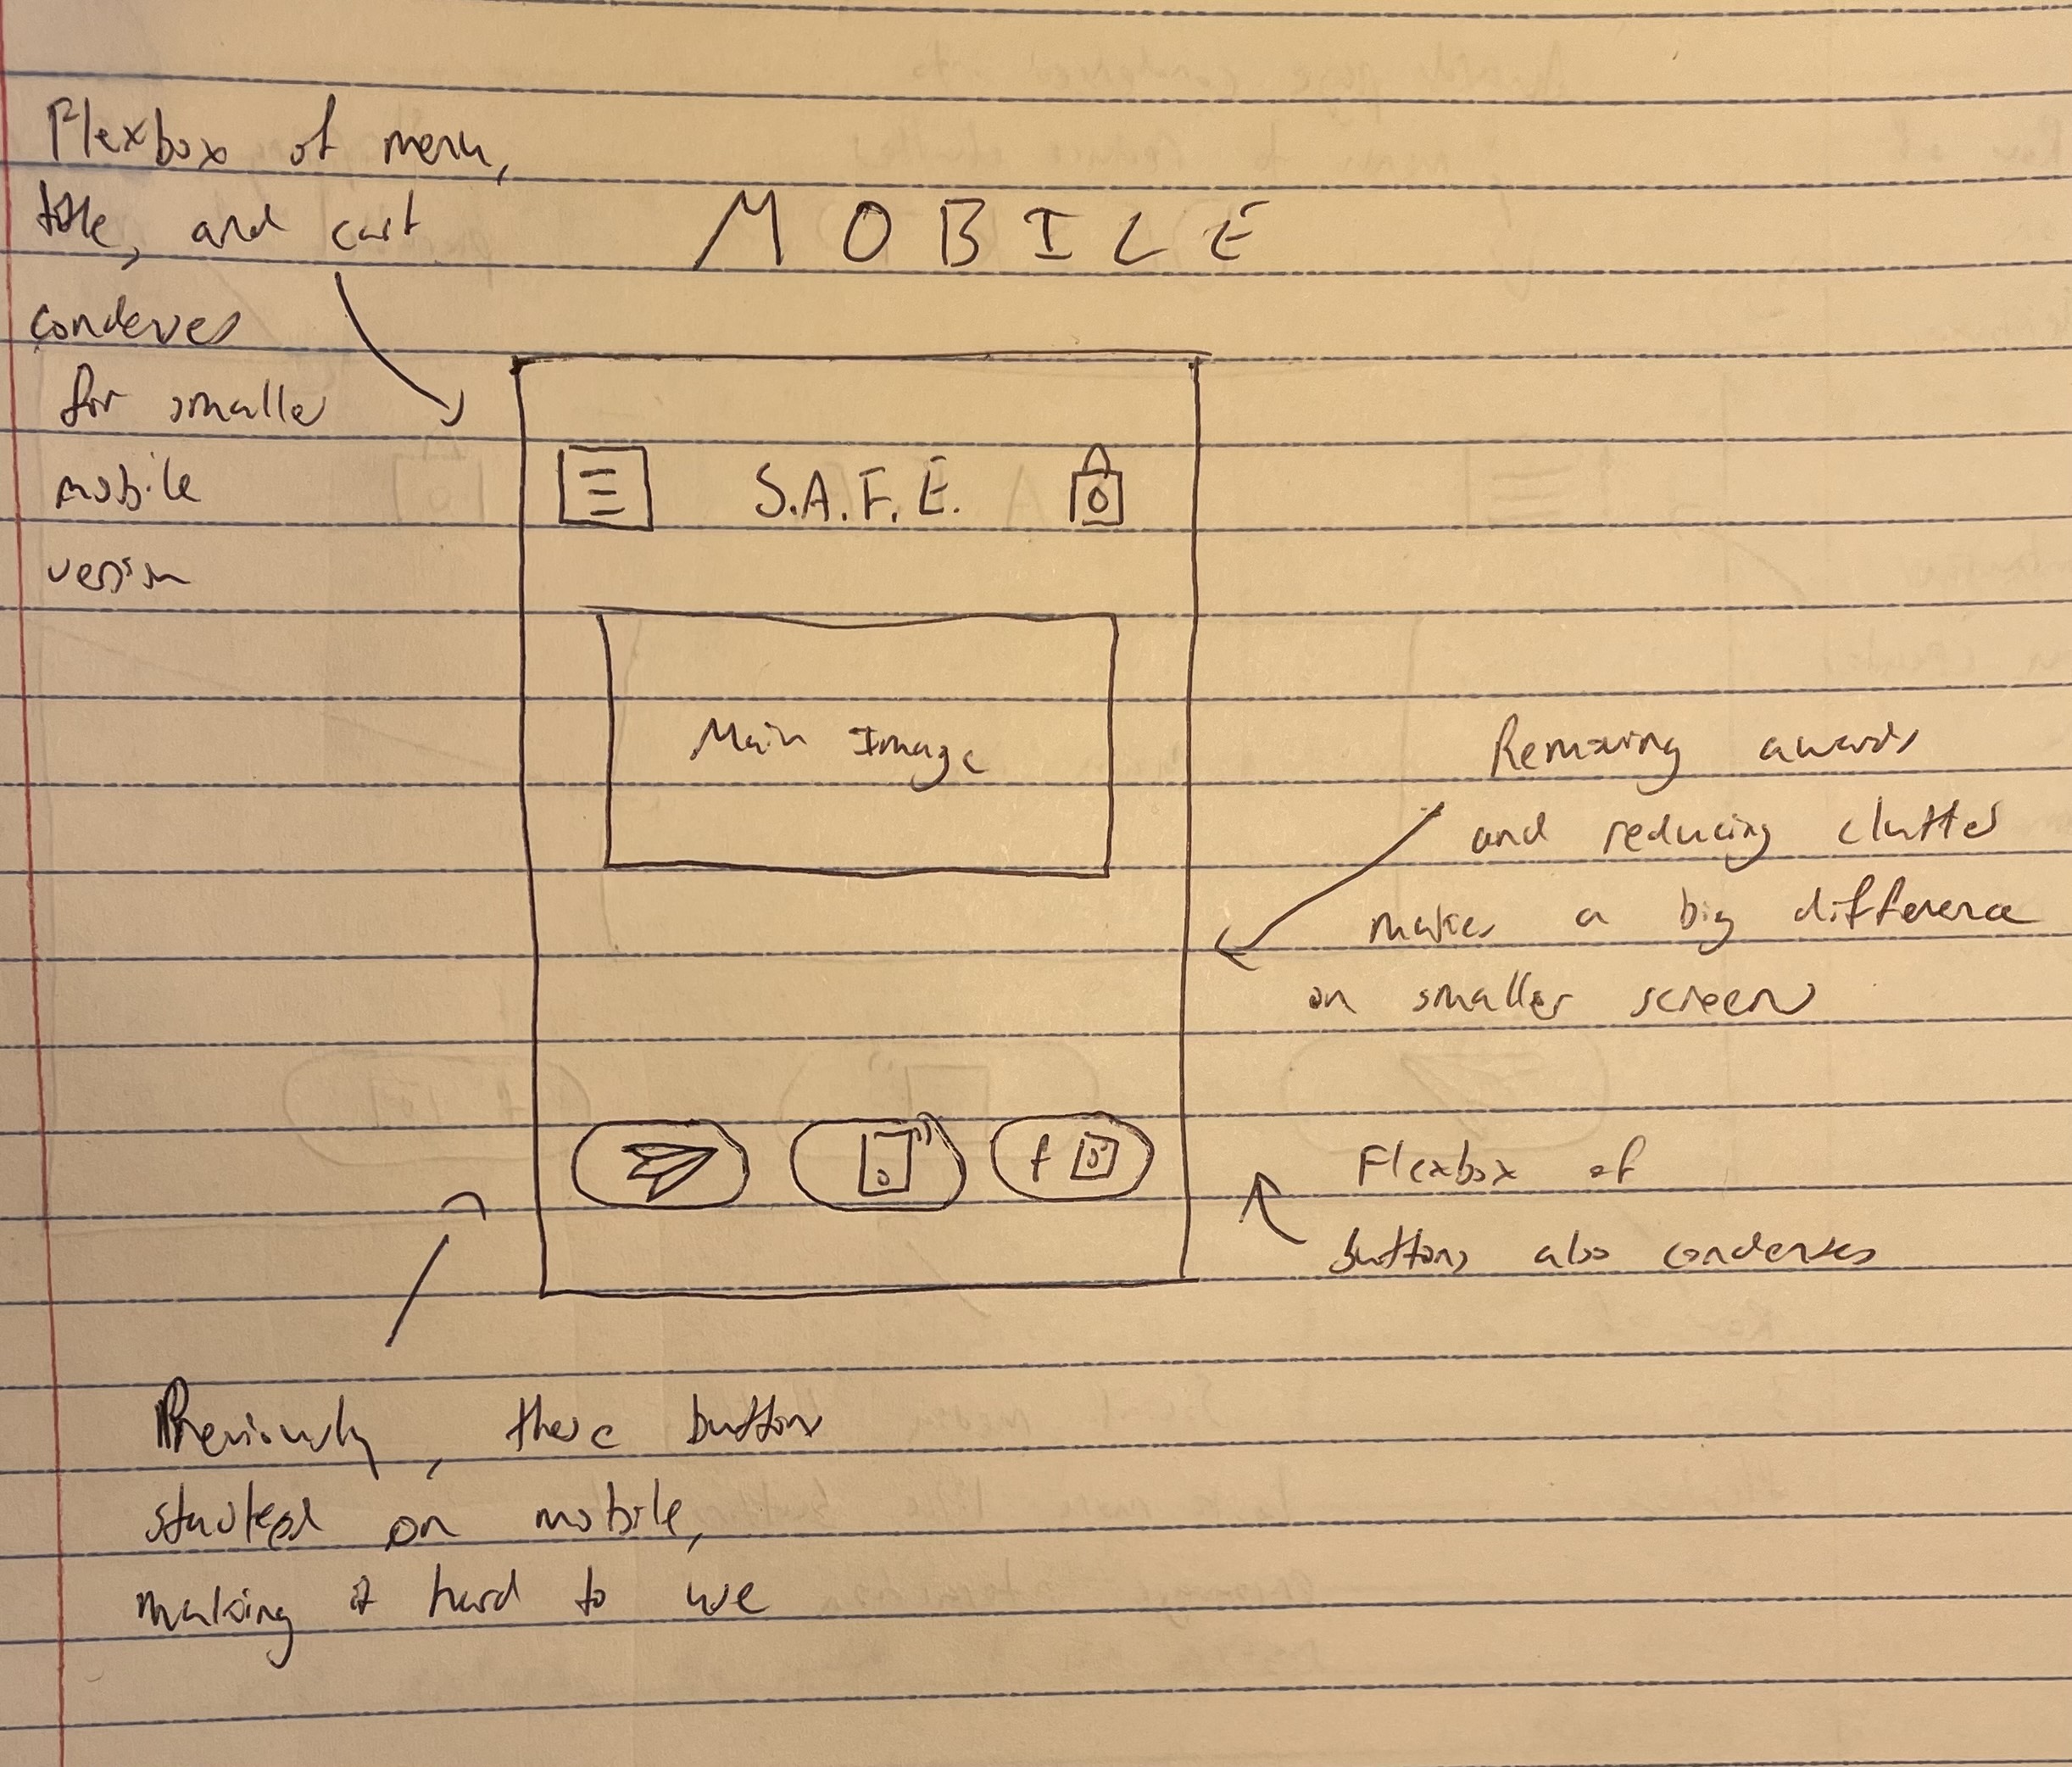 Flexbox of menu,
title, and cart
condenses
for smaller
mobile
version
MOBILE
S.A.F.E.
Main Image
Removing awards
and reducing clutter
makes a big difference
on smaller screen
f
Flexbox of
buttons also condenses
Previously, these buttons
stacked on mobile,
making it hard to use